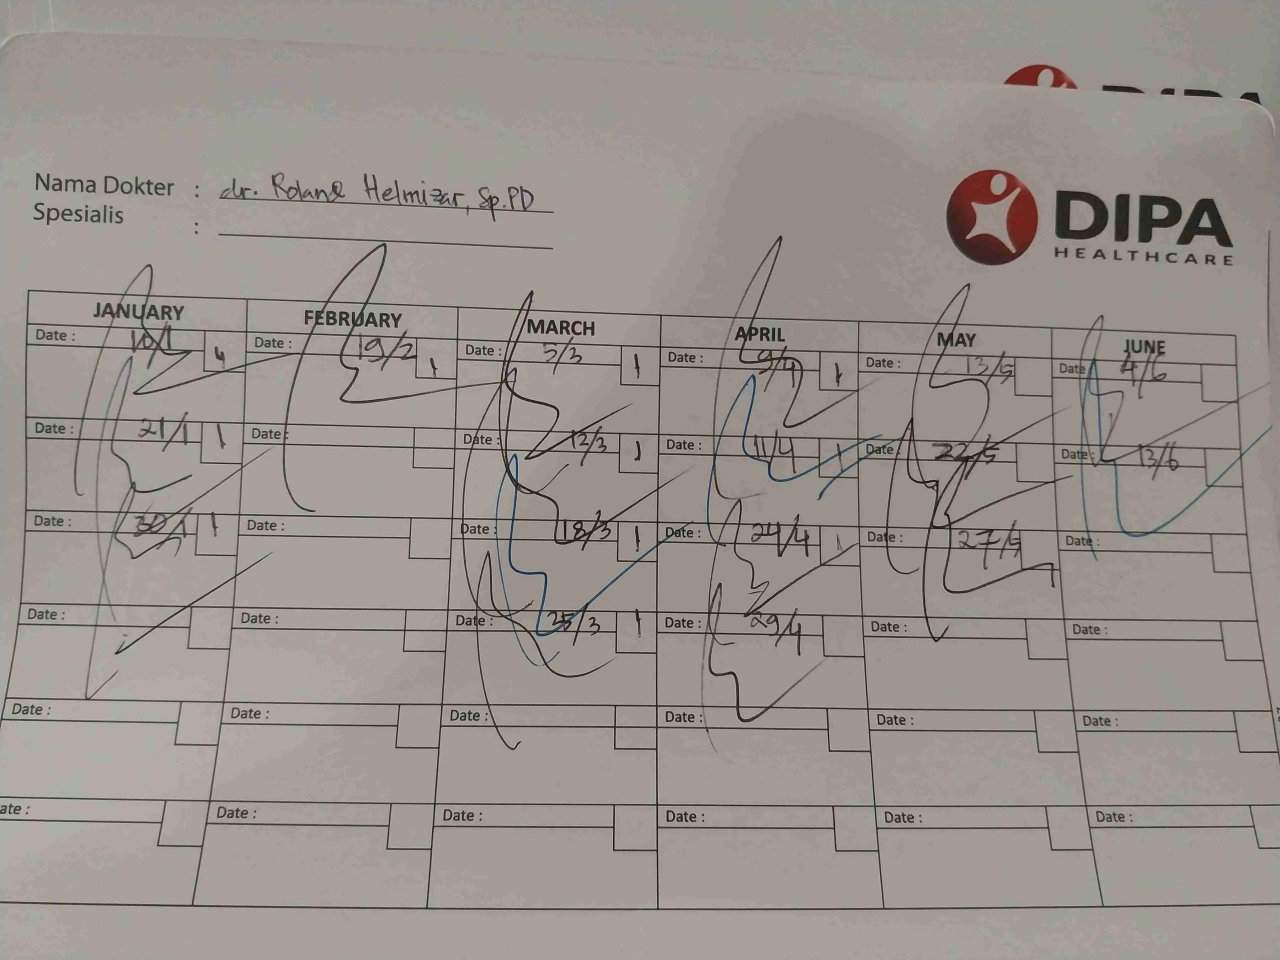 DIPA
Nama Dokter : dr. Roland Helmizar, Sp.PD
Spesialis :
DIPA
HEALTHCARE
JANUARY FEBRUARY MARCH APRIL MAY JUNE
Date : 10/1 Date : 19/2 1 Date : 5/3 1 Date : 9/4 1 Date : 13/5 Date : 4/6
Date : 21/1 1 Date : Date : 12/3 1 Date : 11/4 1 Date : 22/5 Date : 13/6
Date : 30/1 1 Date : Date : 18/3 1 Date : 24/4 1 Date : 27/5 Date :
Date : Date : Date : 25/3 1 Date : 29/4 Date : Date :
Date : Date : Date : Date : Date : Date :
ate : Date : Date : Date : Date : Date :